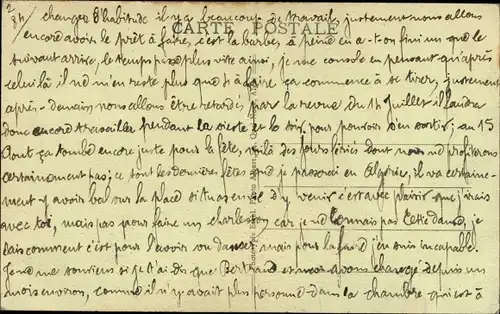 2
changer d'habitude il y a beaucoup de travail, justement nous allons
CARTE POSTALE
encore avoir le prêt à faire, c'est la barbe, à peine en a-t-on fini un que le
suivant arrive, le temps passe plus vite ainsi, je me console en pensant qu'après
celui là il ne m'en reste plus que à faire ça commence à se tirer, justement
après-demain nous allons être retardés par la revue du 14 Juillet il faudra
donc encore travailler pendant la sieste et le soir pour pouvoir s'en sortir, au 15
Août ça tombe encore juste pour la fête, voilà des jours fériés dont nous ne profiterons
certainement pas; ce sont les dernières fêtes que je passerai en Algérie, il va certaine-
ment y avoir bal sur la place si tu as envie d'y venir c'est avec plaisir que j'irais
avec toi, mais pas pour faire un charleston car je ne connais pas cette danse, je
sais comment c'est pour l'avoir vu danser mais pour la faire j'en suis incapable.
Je ne me souviens si je t'ai dis que Bertrand et nous avons changé depuis un
mois environ, comme il n'y avait plus personne dans la chambre qui est à